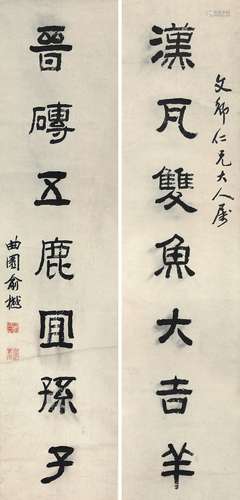 文卿仁兄大人属
漢瓦雙魚大吉羊
晉磚五鹿宜孫子
曲園俞樾